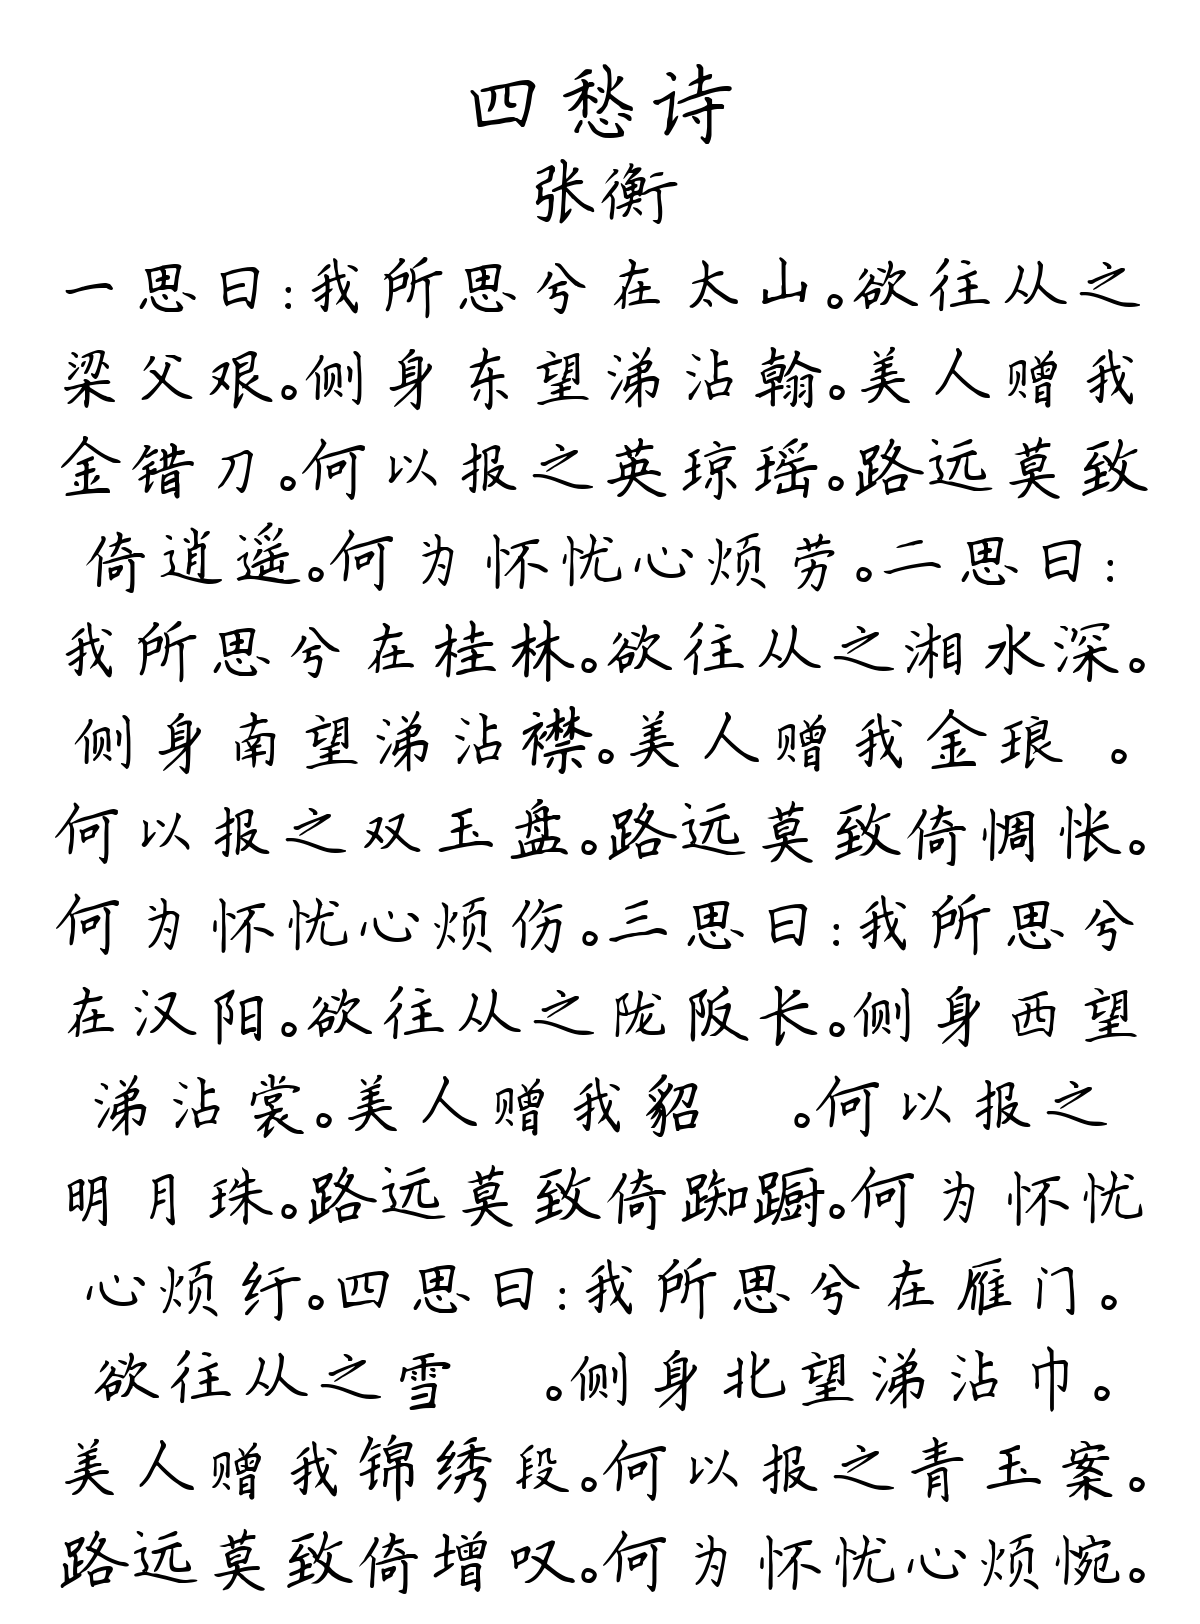 四愁诗
张衡
一思曰:我所思兮在太山。欲往从之
梁父艰。侧身东望涕沾翰。美人赠我
金错刀。何以报之英琼瑶。路远莫致
倚逍遥。何为怀忧心烦劳。二思曰:
我所思兮在桂林。欲往从之湘水深。
侧身南望涕沾襟。美人赠我金琅 。
何以报之双玉盘。路远莫致倚惆怅。
何为怀忧心烦伤。三思曰:我所思兮
在汉阳。欲往从之陇阪长。侧身西望
涕沾裳。美人赠我貂 。何以报之
明月珠。路远莫致倚踟蹰。何为怀忧
心烦纡。四思曰:我所思兮在雁门。
欲往从之雪 。侧身北望涕沾巾。
美人赠我锦绣段。何以报之青玉案。
路远莫致倚增叹。何为怀忧心烦惋。